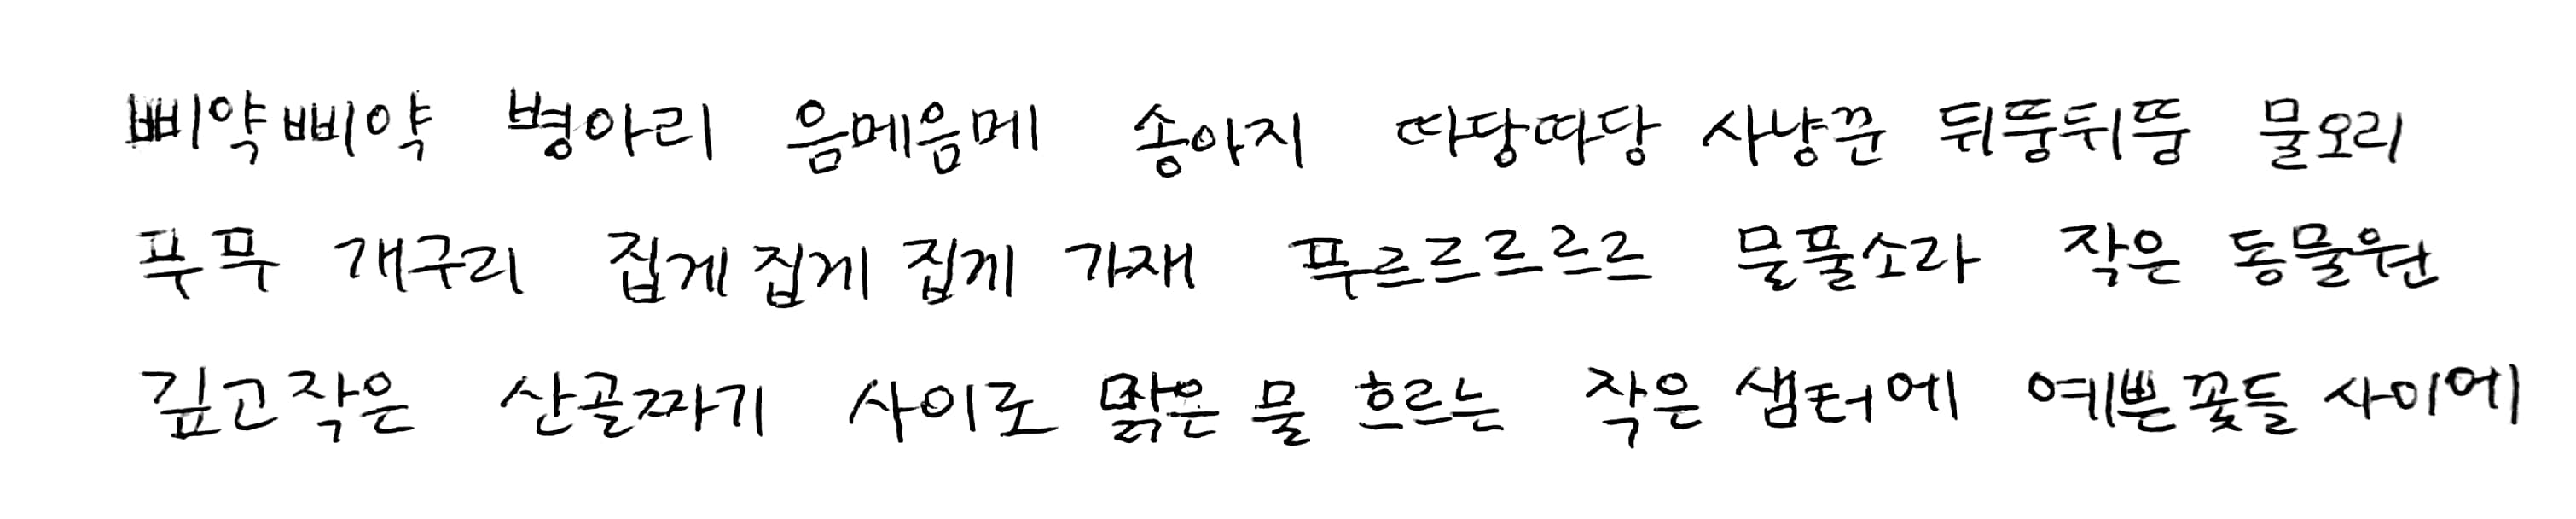 삐약삐약 병아리 음메음메 송아지 따당따당 사냥꾼 뒤뚱뒤뚱 물오리
푸푸 개구리 집게 집게 집게 가재 푸르르르르르 물풀소라 작은 동물원
깊고작은 산골짜기 사이로 맑은 물 흐르는 작은 샘터에 예쁜 꽃들 사이에